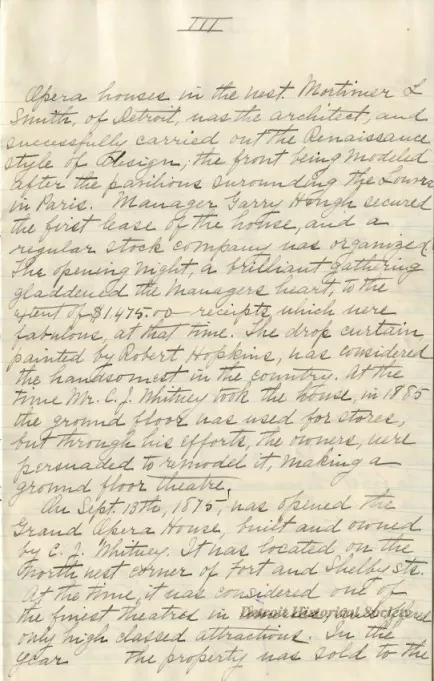 III
Opera houses in the west. Mortimer L
Smith, of Detroit, was the architect, and
successfully carried out the Renaissance
style of design; the front being modeled
after the pavilions surounding the Louvre
in Paris. Manager Garry Hough secured
the first lease of the house, and a
regular stock company was organized.
The opening night, a brilliant gathering
gladdened the Managers heart, to the
extent of $1,475.00 receipts, which were
fabulous, at that time. The drop curtain
painted by Robert Hopkins, was considered
the handsomest in the country. At the
time Mr. C. J. Whitney took the house, in 1885
the ground floor was used for stores,
but through his efforts, the owners, were
persuaded to remodel it, making a
ground floor theatre.
On Sept. 13th, 1875, was opened the
Grand Opera House, built and owned
by C. J. Whitney. It was located on the
North west corner of Fort and Shelby Sts.
At the time, it was considered one of
the finest theatres in Detroit Historical Society
only high classed attractions. In the
year the property was sold to the